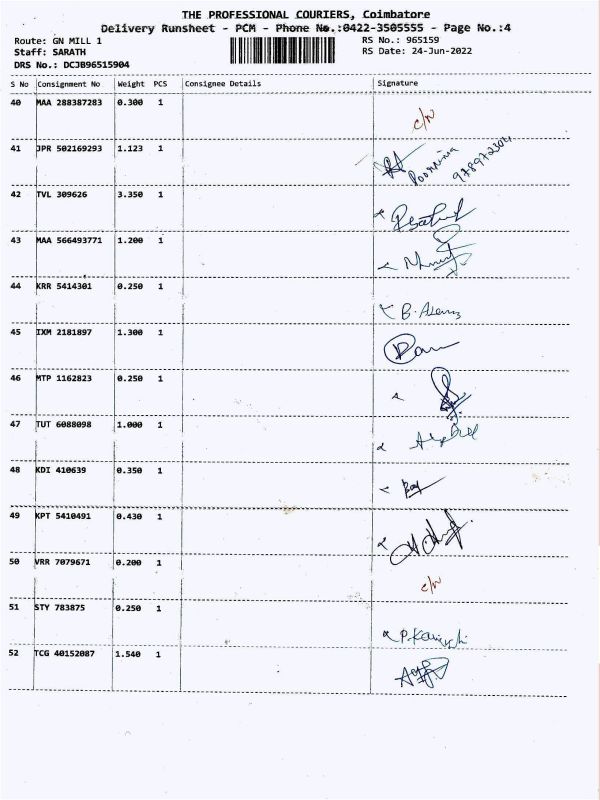 THE PROFESSIONAL COURIERS, Coimbatore
Delivery Runsheet - PCM - Phone No.:0422-3505555 - Page No.:4
Route: GN MILL 1
RS No.: 965159
Staff: SARATH
RS Date: 24-Jun-2022
DRS No.: DCJB96515904
S No Consignment No Weight PCS Consignee Details Signature
40 MAA 288387283 0.300 1
c/n
41 JPR 502169293 1.123 1
Poornima
42 TVL 309626 3.350 1
43 MAA 566493771 1.200 1
44 KRR 5414301 0.250 1
45 IXM 2181897 1.300 1
46 MTP 1162823 0.250 1
47 TUT 6088098 1.000 1
48 KDI 410639 0.350 1
49 KPT 5410491 0.430 1
50 VRR 7079671 0.200 1
c/n
51 STY 783875 0.250 1
52 TCG 40152087 1.540 1